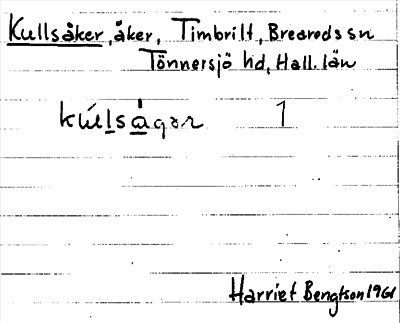 Kullsåker, åker, Timbrilt, Breareds sn
Tönnersjö hd, Hall. län
kúlsågər 1
Harriet Bengtson 1961